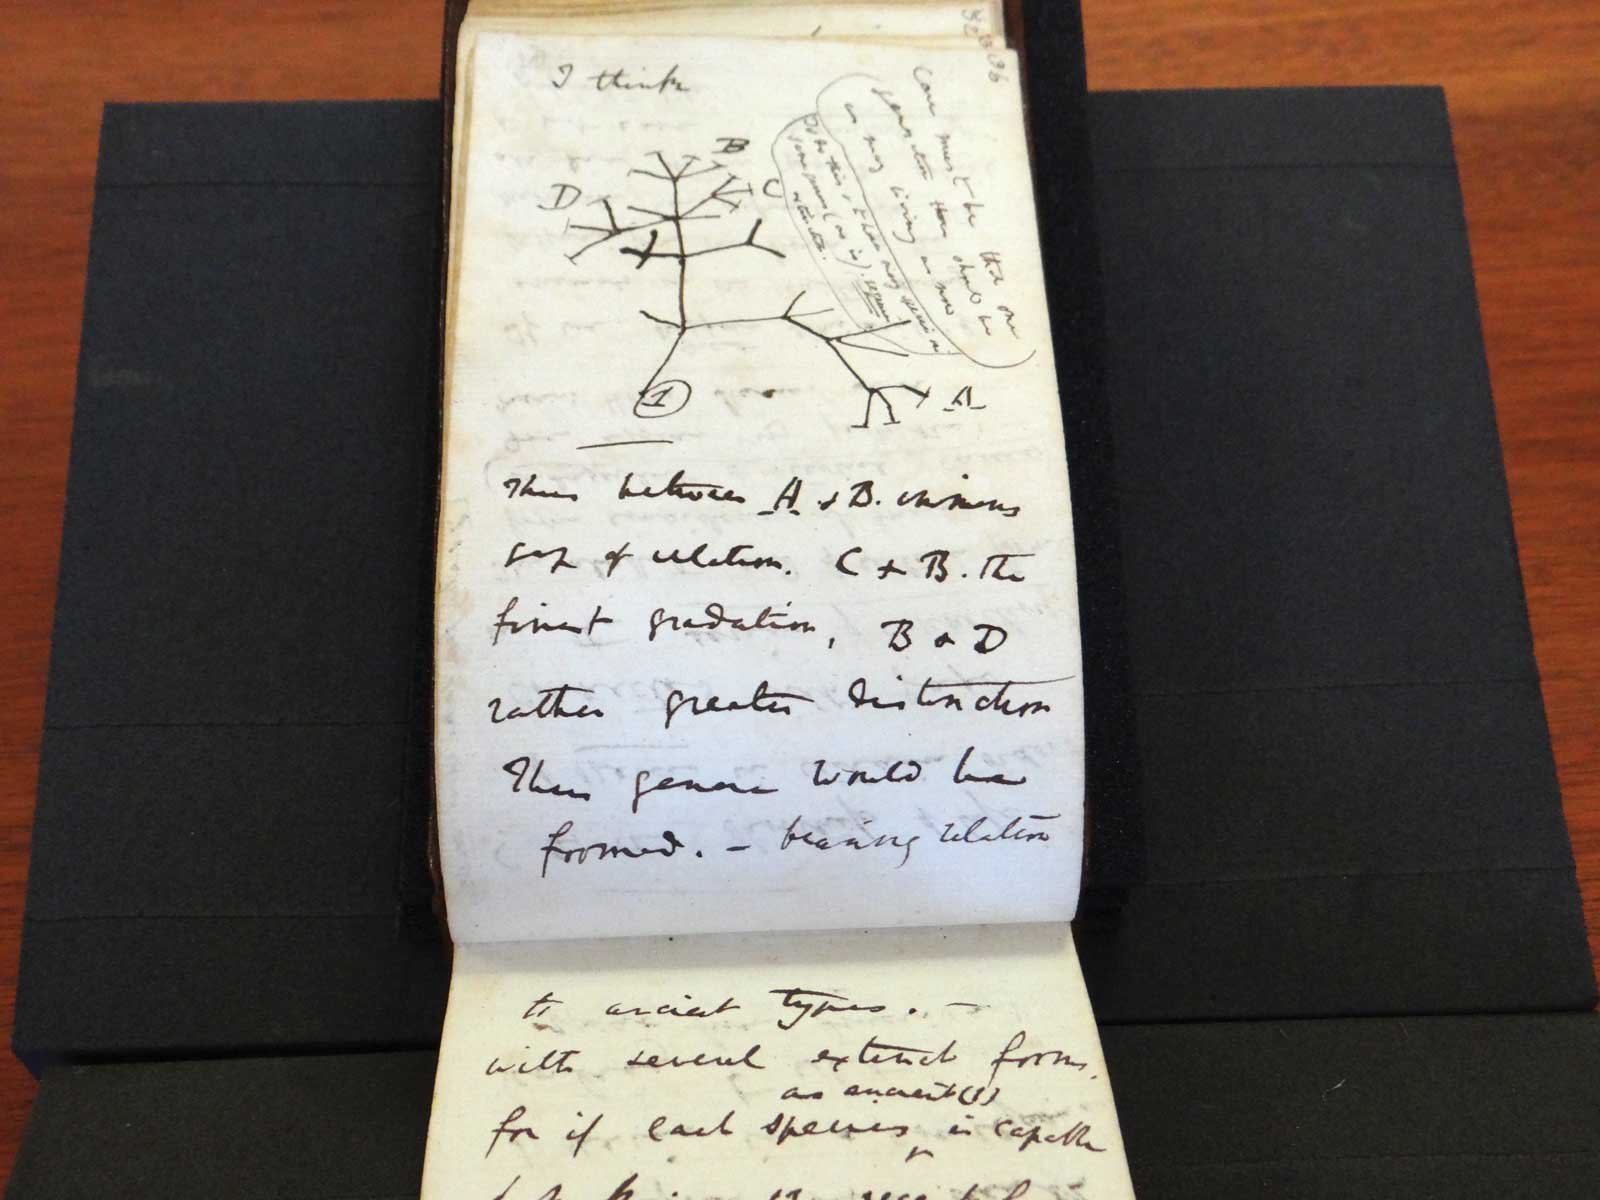 I think
B
C
D
A
1
Case must be that one
generation then should be
as many living as now
To do this & to have many species in
same genus (as is). requires
extinction.
Thus between A & B. immens
gap of relation. C & B. the
finest gradation, B & D
rather greater distinction
Thus genera would be
formed. — bearing relation
to ancient types. —
with several extinct forms,
as ancient (1)
for if each species is capable